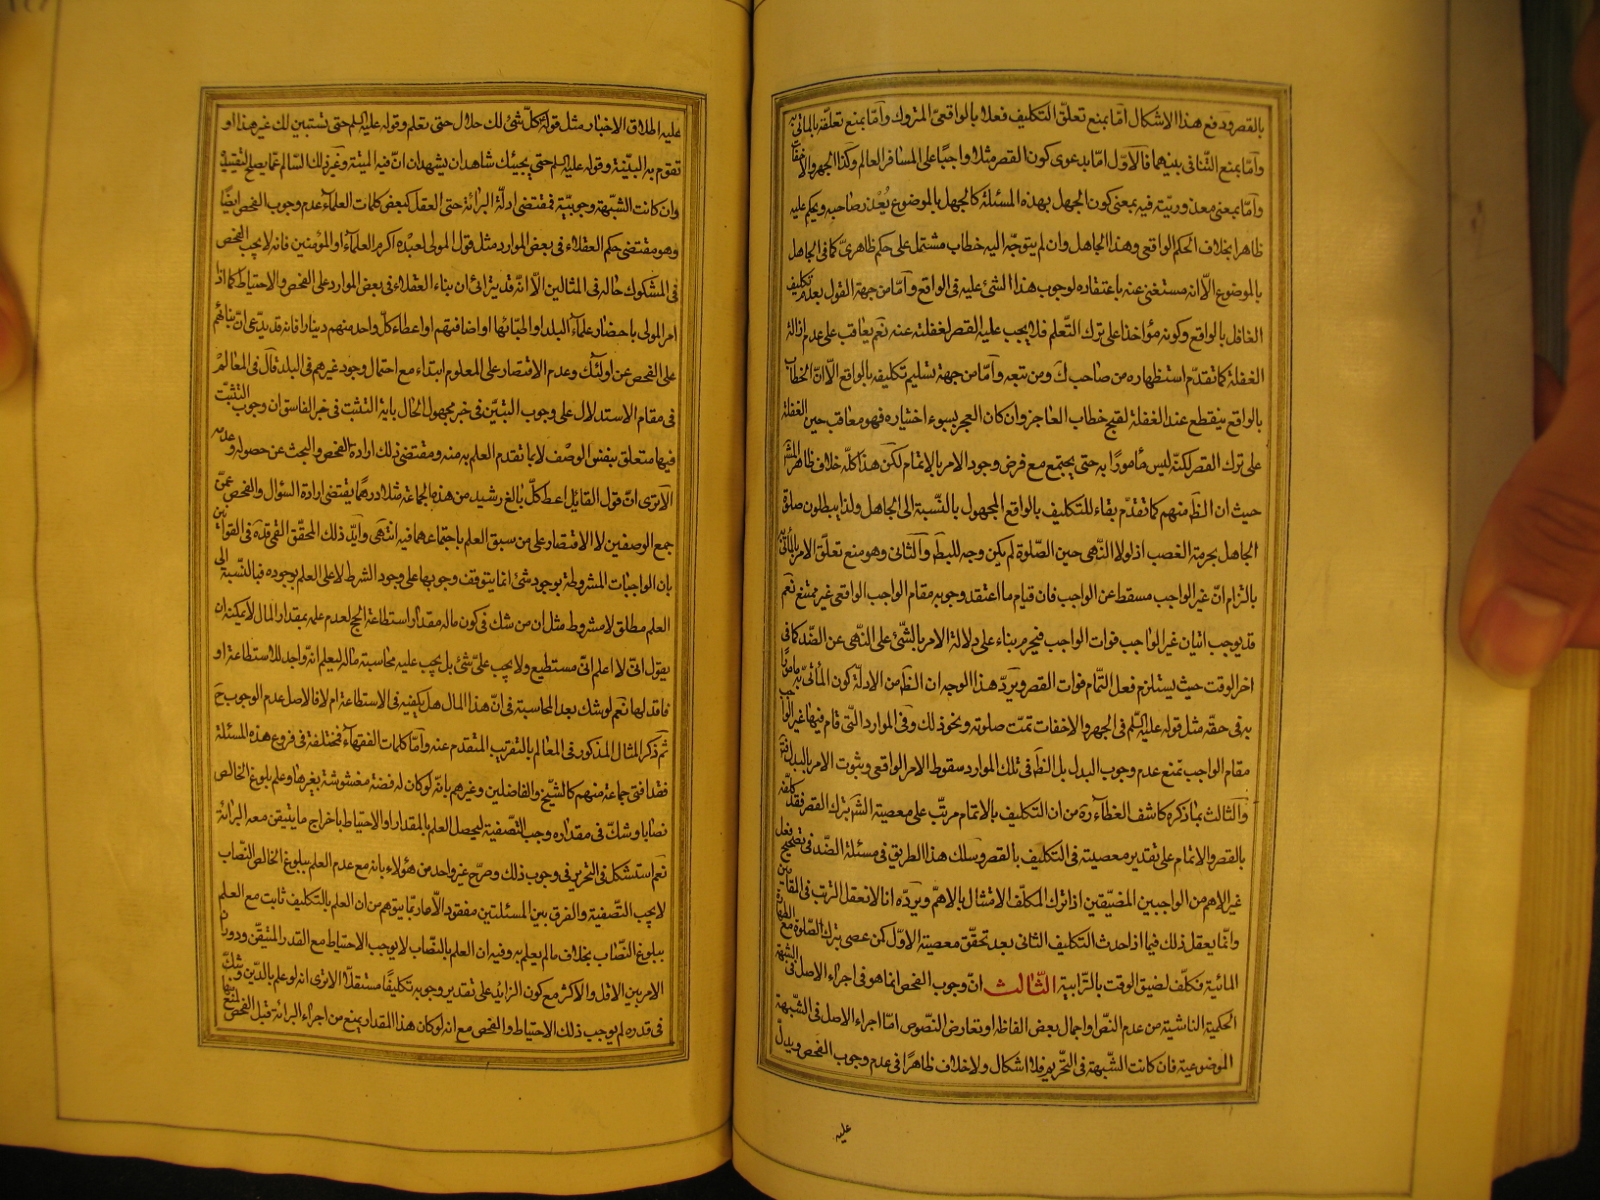 بالقصر ودفع هذا الاشكال امّا بمنع تعلّق التكليف فعلا بالواقعىّ المتروك وامّا بمنع تعلّقه بالماتىّ به
وامّا بمنع التّنافى بينهما فالاوّل امّا بدعوى كون القصر مثلا واجبًا على المسافر العالم وكذا الجهر والاخفات
وامّا بمعنى معذوريّته فيه بمعنى كون الجهل بهذه المسئلة كالجهل بالموضوع يُعْذر صاحبه ويحكم عليه
ظاهرا بخلاف الحكم الواقعى وهذا الجاهل وان لم يتوجّه اليه خطاب مشتمل على حكم ظاهرىّ كما فى الجاهل
بالموضوع الّا انه مستغنى عنه باعتقاده لوجوب هذا الشئ عليه فى الواقع وامّا من جهة القول بعدم تكليف
الغافل بالواقع وكونه مؤاخذا على ترك التّعلم فلا يجب عليه القصر لغفلته عنه نعم يعاقب على عدم ازالة
الغفلة كما تقدّم استظهاره من صاحب ك ومن تبعه وامّا من جهة تسليم تكليفه بالواقع الّا انّ الخطاب
بالواقع ينقطع عند الغفلة لقبح خطاب العاجز وان كان العجز بسوء اختياره فهو معاقب حين الغفلة
على ترك القصر لكنّه ليس مأمورًا به حتى يجتمع مع فرض وجود الامر بالاتمام لكن هذا كلّه خلاف ظاهر المش
حيث ان الظ منهم كما تقدّم بقاء للتكليف بالواقع المجهول بالنّسبة الى الجاهل ولذا يبطلون صلوة
الجاهل بحرمة الغصب اذ لولا النّهى حين الصّلوة لم يكن وجه للبط والثانى وهو منع تعلّق الامر بالمأتىّ به
بالتزام انّ غير الواجب مسقط عن الواجب فان قيام ما اعتقد وجوبه مقام الواجب الواقعى غير ممتنع نعم
قد يوجب اتيان غير الواجب فوات الواجب فيحرم بناء على دلالة الامر بالشّئ على النّهى عن الضّد كما فى
اخر الوقت حيث يستلزم فعل التّمام فوات القصر ويردّ هذا الوجه ان الظ من الادلّة كون المأتىّ به مأمورًا
به فى حقّه مثل قوله عليه السّلم فى الجهر والاخفات تمّت صلوته ونحو ذلك وفى الموارد الّتى قام فيها غير الواجب
مقام الواجب نمنع عدم وجوب البدل بل الظ فى تلك الموارد سقوط الامر الواقعى وثبوت الامر بالبدل فتم
والثالث بما ذكره كاشف الغطاء ره من ان التكليف بالاتمام مرتّب على معصية الش بترك القصر فقد كلّفه
بالقصر والاتمام على تقدير معصيته فى التكليف بالقصر وسلك هذا الطريق فى مسئلة الضّد فى تصحيح فعل
غير الاهم من الواجبين المضيّقين اذا ترك المكلّف الامتثال بالاهمّ ويردّه انا لا نعقل الترتب فى المقامين
وانّما يعقل ذلك فيما اذا حدث التكليف الثانى بعد تحقّق معصية الاوّل كمن عصى بترك الصّلوة مع الطهارة
المائية فكلّف لضيق الوقت بالتّرابية الثّالث انّ وجوب الفحص انما هو فى اجراء الاصل فى الشبهة
الحكمية الناشية من عدم النصّ او اجمال بعض الفاظه او تعارض النّصوص امّا اجراء الاصل فى الشّبهة
الموضوعية فان كانت الشّبهة فى التّحريم فلا اشكال ولا خلاف ظاهرًا فى عدم وجوب الفحص ويدلّ
عليه
عليه اطلاق الاخبار مثل قوله كلّ شئ لك حلال حتى تعلم وقوله عليه السلم حتى يستبين لك غير هذا او
تقوم به البيّنة وقوله عليه السلم حتى يجيئك شاهدان يشهدان انّ فيه الميتة وغير ذلك السّالم عمّا يصلح لتقييده
وان كانت الشّبهة وجوبيّة فمقتضى ادلّة البرائة حتى العقل كبعض كلمات العلماء عدم وجوب الفحص ايضًا
وهو مقتضى حكم العقلاء فى بعض الموارد مثل قول المولى لعبْده اكرم العلماء او المؤمنين فانه لا يجب الفحص
فى المشكوك حاله فى المثالين الّا انّه قد يتراءى ان بناء العقلاء فى بعض الموارد على الفحص والاحتياط كما اذا
امر المولى باحضار علماء البلد او اطبّائها او اضافتهم او اعطاء كلّ واحد منهم دينارا فانه قد يدّعى انّ بنائهم
على الفحص عن اولئك وعدم الاقتصار على المعلوم ابتداء مع احتمال وجود غيرهم فى البلد قال فى المعالم
فى مقام الاستدلال على وجوب التبيّن فى خبر مجهول الحال باية التثبت فى خبر الفاسق ان وجوب التثبّت
فيها متعلق بنفس الوصْف لا بما تقدم العلم به منه ومقتضى ذلك ارادة الفحص والبحث عن حصوله وعدمه
الا ترى انّ قول القائل اعط كلّ بالغ رشيد من هذه الجماعة مثلا درهما يقتضى ارادة السؤال والفحص عمّن
جمع الوصفين لا الاقتصار على من سبق العلم باجتماعهما فيه انتهى وايّد ذلك المحقّق القمى قده فى القوانين
بان الواجبات المشروطة بوجود شئ انما يتوقف وجوبها على وجود الشرط لا على العلم بوجوده فبالنّسبة الى
العلم مطلق لا مشروط مثل ان من شك فى كون ماله مقدار استطاعة الحج لعدم علمه بمقدار المال لا يمكنه ان
يقول انّى لا اعلم انّى مستطيع ولا يجب علىّ شئ بل يجب عليه محاسبة ماله ليعلم انّه واجد للاستطاعة او
فاقد لها نعم لو شك بعد المحاسبة فى انّ هذا المال هل يكفيه فى الاستطاعة ام لا فالاصل عدم الوجوب ح
ثم ذكر المثال المذكور فى المعالم بالتقريب المتقدم عنه وامّا كلمات الفقهاء فمختلفة فى فروع هذه المسئلة
فقد افتى جماعة منهم كالشّيخ والفاضلين وغيرهم بانّه لو كان له فضة مغشوشة بغيرها وعلم بلوغ الخالص
نصابا وشكّ فى مقداره وجب التّصفية ليحصل العلم بالمقدار او الاحتياط باخراج ما يتيقن معه البرائة
نعم استشكل فى التحرير فى وجوب ذلك وصرّح غير واحد من هؤلاء بانه مع عدم العلم ببلوغ الخالص النّصاب
لا يجب التّصفية والفرق بين المسئلتين مفقود الّا ما ربّما يتوهم من ان العلم بالتكليف ثابت مع العلم
ببلوغ النّصاب بخلاف ما لم يعلم به وفيه ان العلم بالنّصاب لا يوجب الاحتياط مع القدر المتيقّن ودوران
الامر بين الاقل والاكثر مع كون الزائد على تقدير وجوبه تكليفًا مستقلّا الا ترى انه لو علم بالدّين وشكّ
فى قدره لم يوجب ذلك الاحتياط والفحص مع انه لو كان هذا المقدار يمنع من اجراء البرائة قبل الفحص لمنع منها